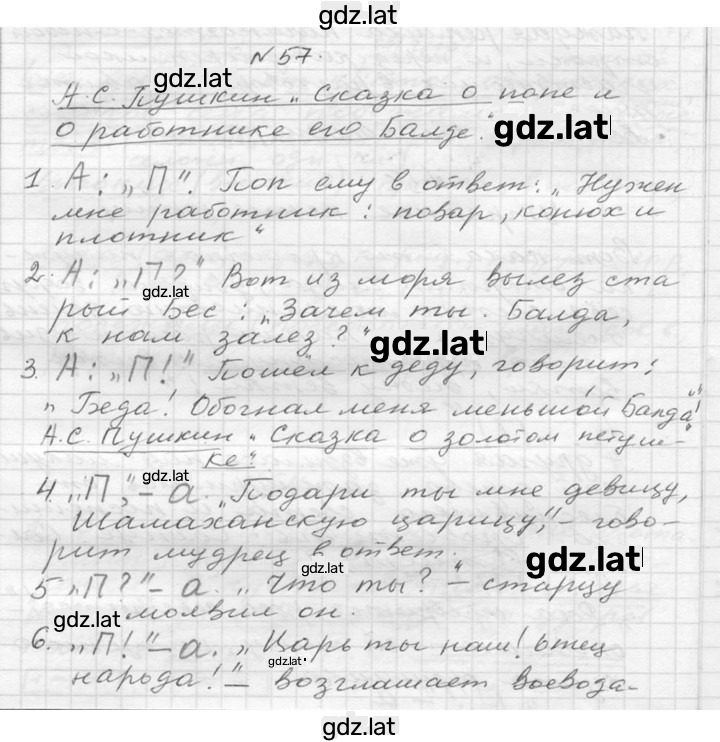 gdz.lat
N 57.
gdz.lat
А.С. Пушкин „Сказка о попе и
о работнике его Балде." gdz.lat
1. А: „П". Поп ему в ответ: „Нужен
мне работник: повар, конюх и
плотник"
2. А: „П?" Вот из моря вылез ста
gdz.lat
рый Бес: „Зачем ты. Балда,
к нам залез?" gdz.lat
3. А: „П!" Пошёл к деду, говорит:
„Беда! Обогнал меня меньшой Балда!"
А.С. Пушкин „Сказка о золотом петуш-
ке"
gdz.lat
4. „П," – а. „Подари ты мне девицу,
Шамаханскую царицу," – гово-
рит мудрец в ответ. gdz.lat
gdz.lat
5 „П?" – а. „Что ты?" – старцу
молвил он.
gdz.lat
6. „П!" – а. „Царь ты наш! отец
gdz.lat
народа!" – возглашает воевода-
gdz.lat